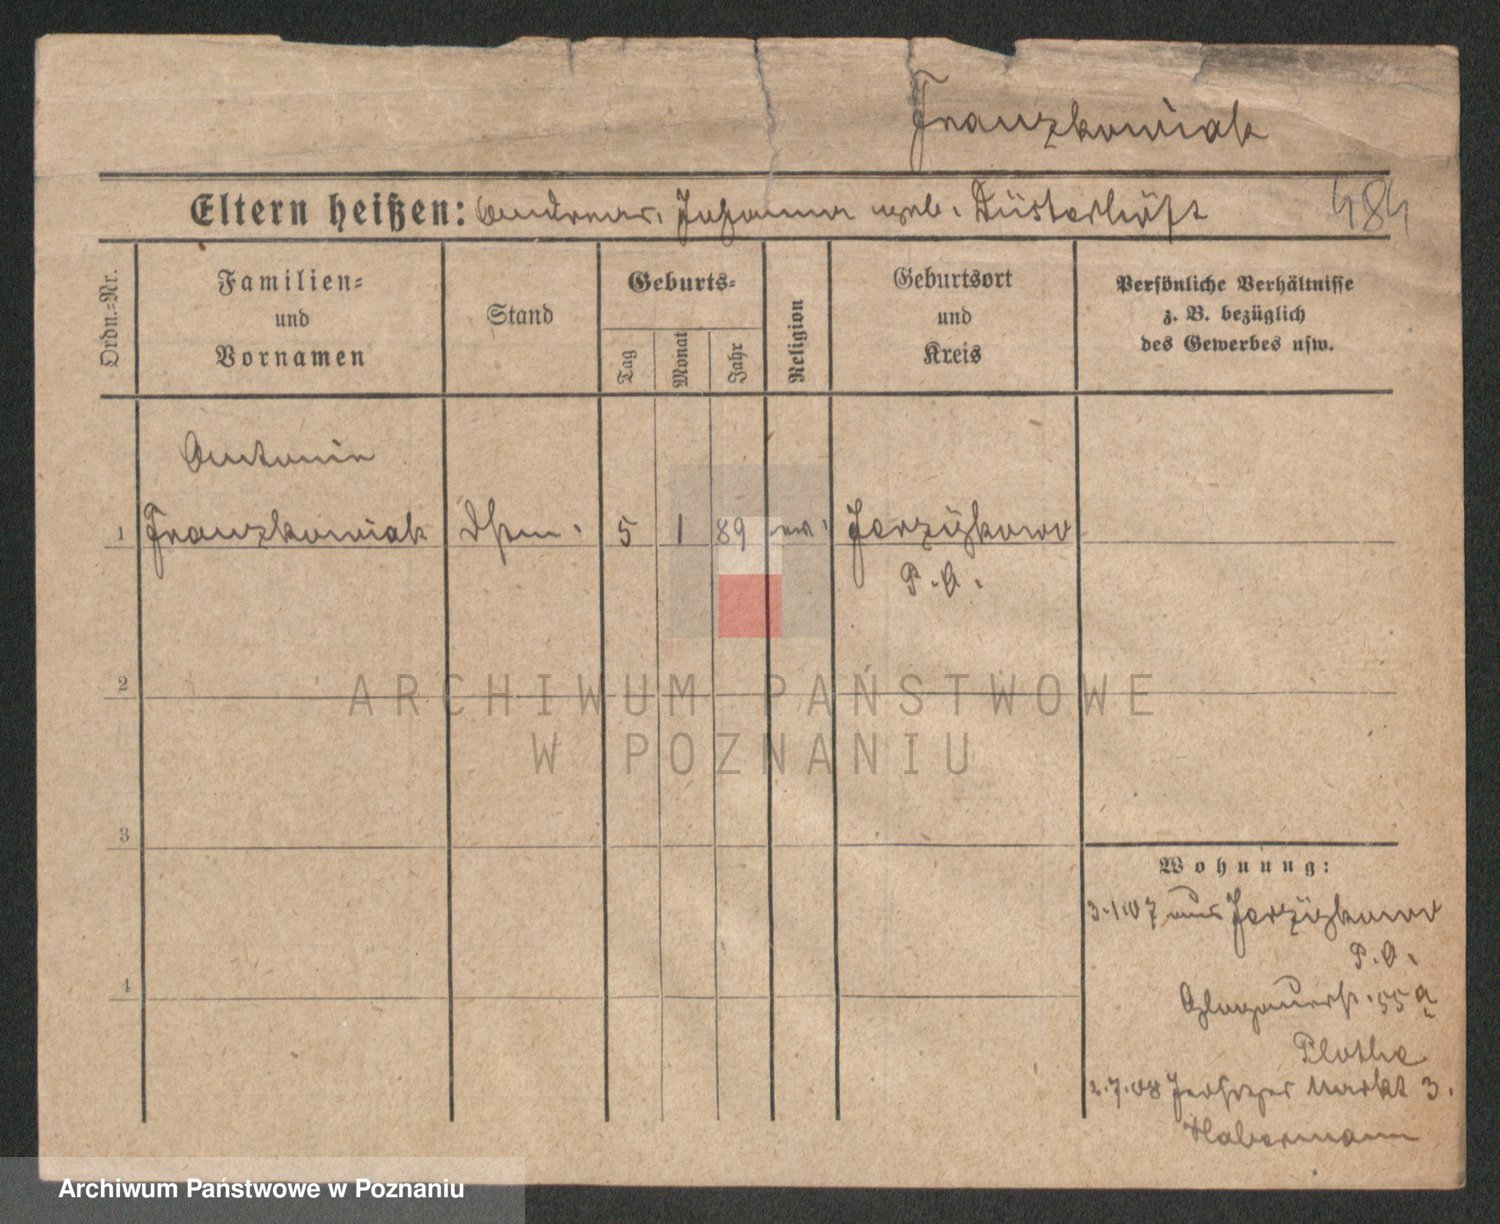 Franzkowiak
Eltern heißen: Andreas, Johanna geb. Düsterhöft 484
Ordn.-Nr.
Familien-
und
Vornamen
Stand
Geburts-
Tag
Monat
Jahr
Religion
Geburtsort
und
Kreis
Persönliche Verhältnisse
z. B. bezüglich
des Gewerbes usw.
Antonie
1 Franzkowiak 5 1 89 ev. Jerzykowo
P. O.
2
ARCHIWUM PAŃSTWOWE
W POZNANIU
3
Wohnung:
3.1.07 aus Jerzykowo
P. O.
4
Glogauerst. 55 a
Plothe
2.7.08 Jersitzer Markt 3.
Habermann
Archiwum Państwowe w Poznaniu